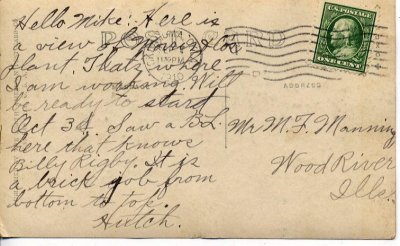 POST CARD
U.S. POSTAGE
ONE CENT
11 30 PM
1910
ADDRESS
Hello Mike: Here is
a view of Morris & Co
plant. Thats where
I am working. Will
be ready to start
Oct 3d. Saw a B.L.
here that knows
Billy Rigby. It is
a brick job from
bottom to top.
Hutch.
Mr M. F. Manning
Wood River
Ills.